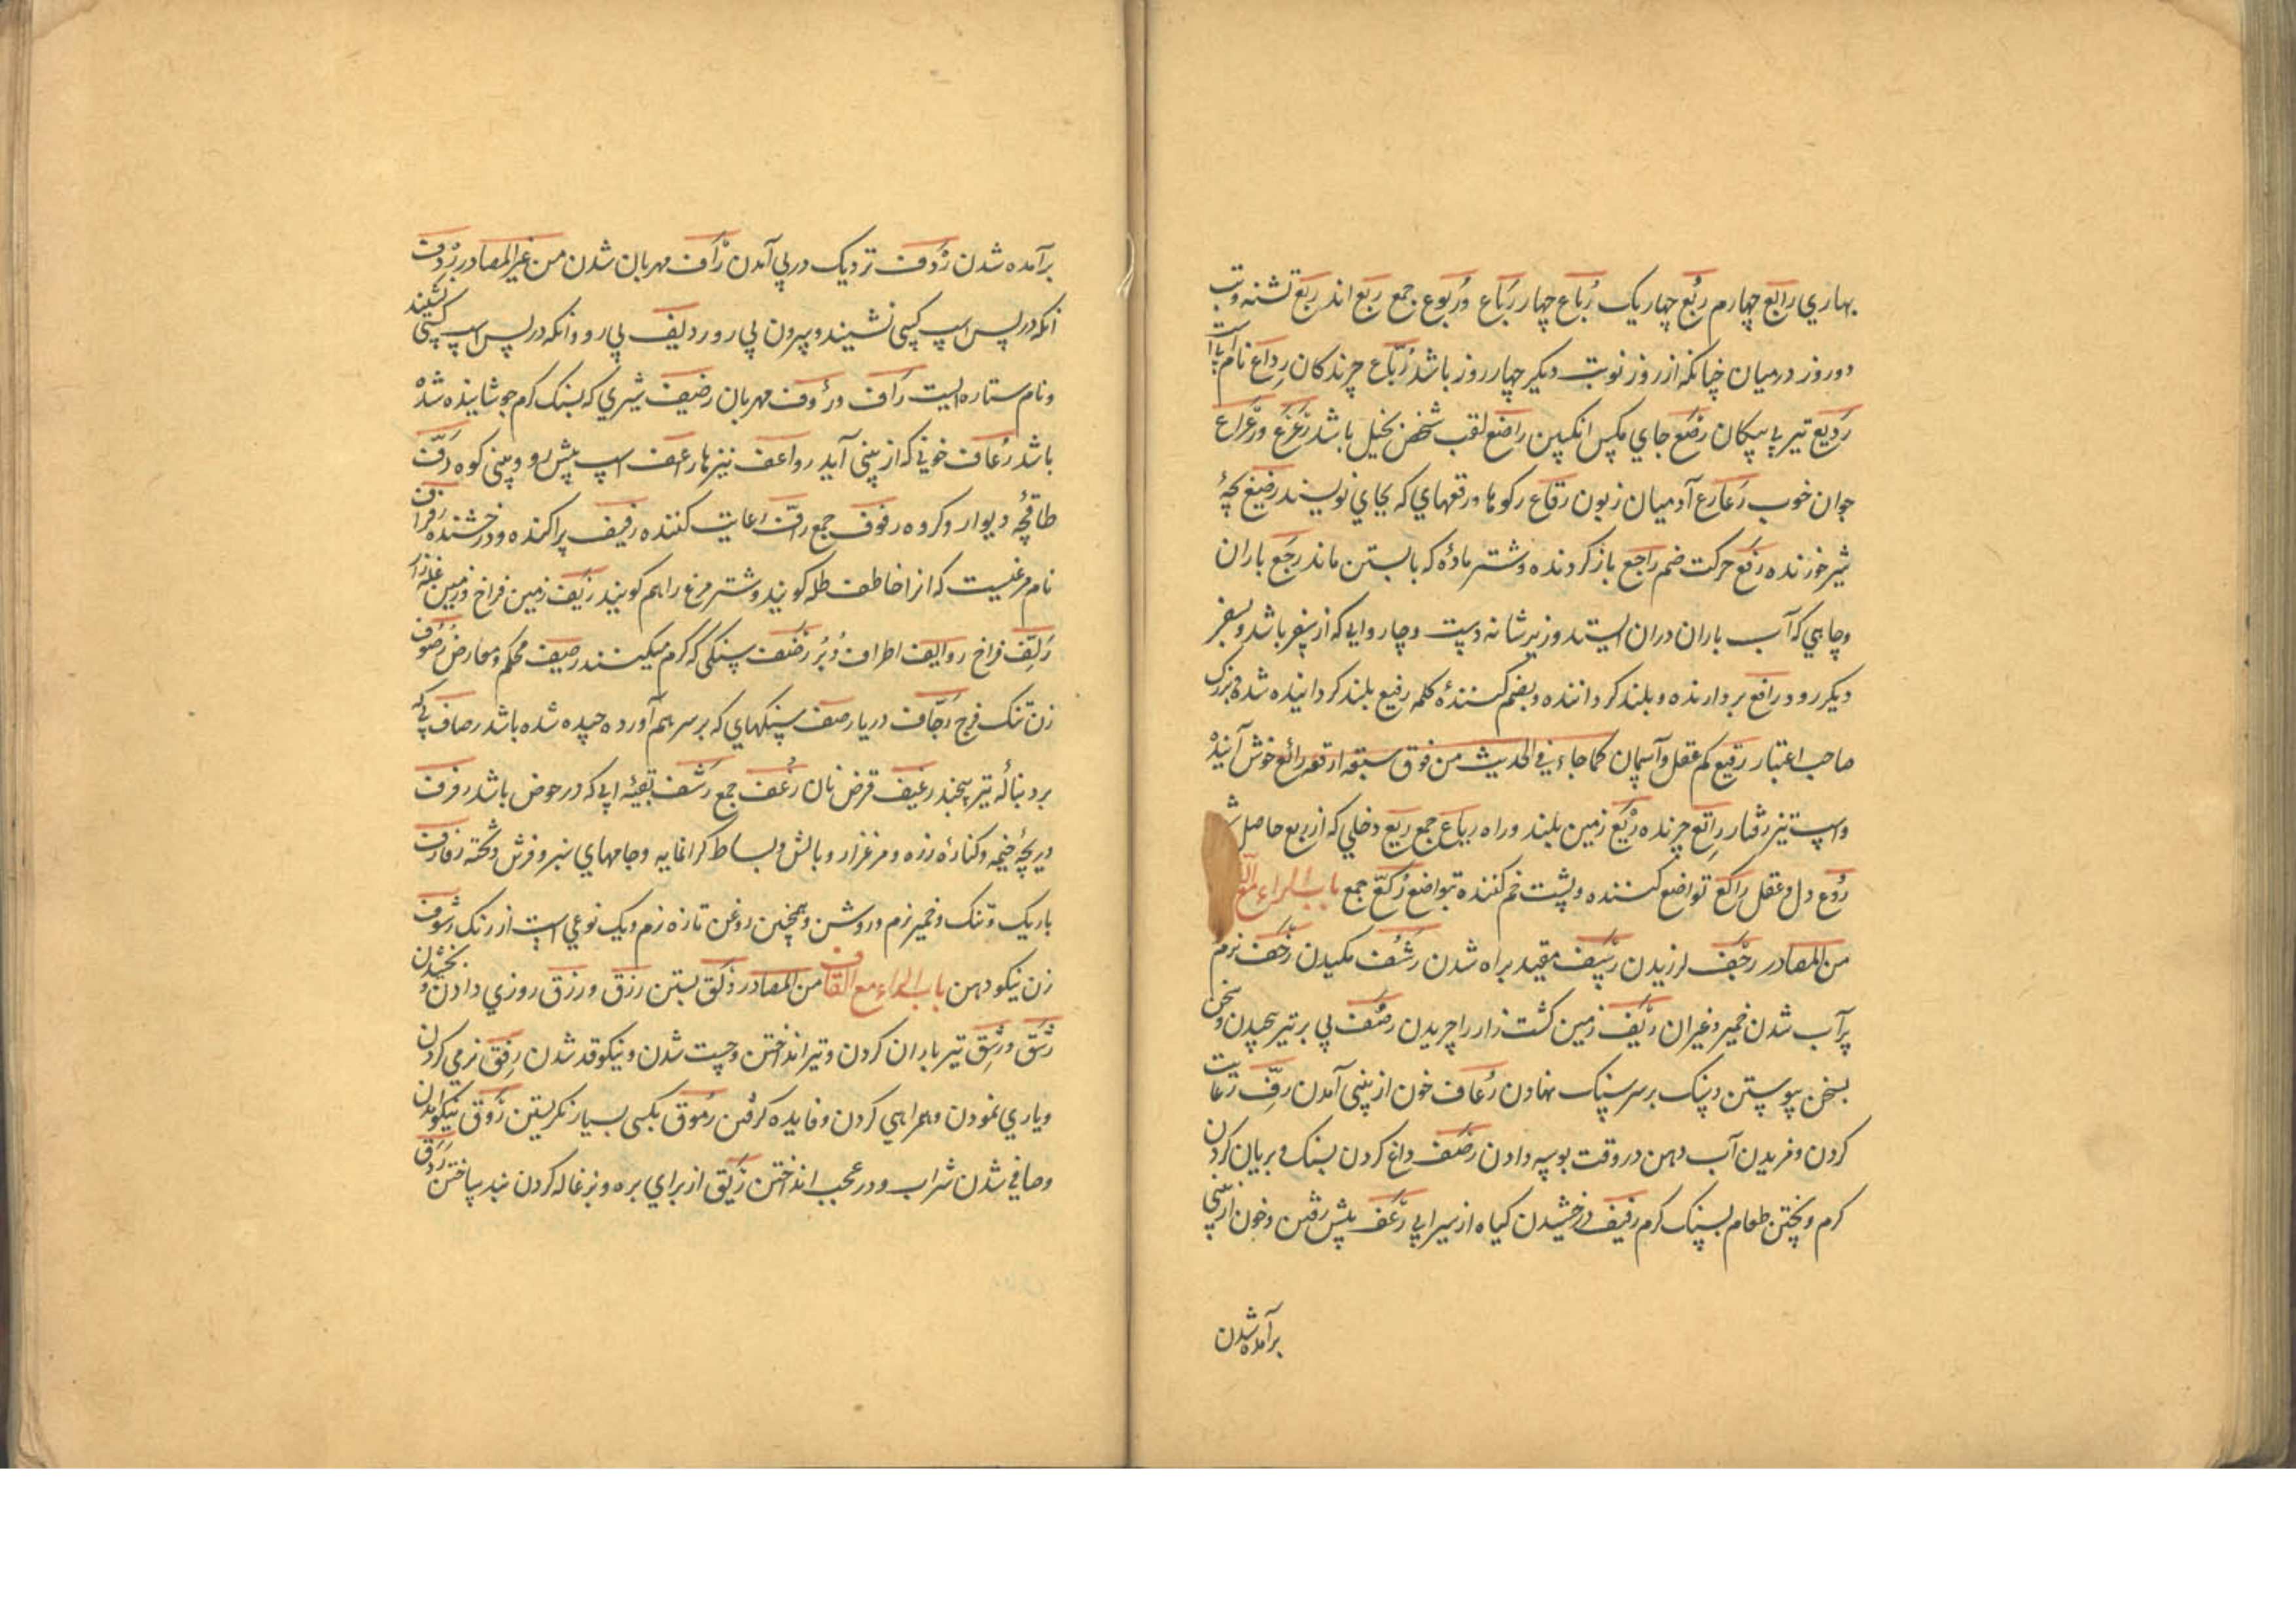 بهاري رابع چهارم ربع چهار يک رُباع چهار رَباع و رُبوع جمع ربع اند ربع تشنه و تب
دو روز درميان چنانکه از روز نوبت ديکر چهار روز باشد رُبّاع چرندکان رداع نام
رَديع تير بي پيکان رضع جاي مکس انکبين راضع لقب شخص بخيل باشد رَعرَع و رَعراع
جوان خوب رَعارع آدميان زبون رقاع رکوها و رقعهاي که بجاي نويسند رضيع بچهٔ
شير خورنده رفع حرکت ضم راجع باز کردنده و شتر ماده که بابستن ماند رَجع باران
و جاهي که آب باران دران ايستد و زير شانه دست و چاروايي که از سفر باشد و بسفر
ديکر رود رافع بردارنده و بلند کرداننده و بضم کنندهٔ کلمه رفيع بلند کردانيده شده و بزرک
صاحب اعتبار رقيع کم عقل و آسمان کما جاء في الحديث من فوق سبعة ارقعه رائع خوش آينده
و اسپ تيز رفتار راتع چرنده ريع زمين بلند و راه رياع جمع ريع دخلي که از ربع حاصل
رُوع دل و عقل راکع تواضع کننده و پشت خم کننده بتواضع رُکّع جمع باب الراء مع
من المصادر رجف لرزيدن رسيف مقيد براه شدن رشف مکيدن رخف نرم و
پرآب شدن خمير و غيران ريف زمين کشت زار را چريدن رصف پي بر تير پيچيدن و سخن
بسخن پيوستن و سنک بر سر سنک نهادن رُعاف خون از بيني آمدن رفّ رعايت
کردن و مزيدن آب دهن در وقت بوسه دادن رضف داغ کردن بسنک و بريان کردن
کرم و پختن طعام بسنک کرم رفيف درخشيدن کياه از سيرابي رَعف پيش رفتن و خون از بيني
برآمده شدن
برآمده شدن رَدف نزديک در پي آمدن رأف مهربان شدن من غير المصادر ردف
آنکه در پس اسپ کسي نشيند و سرون پي رو رديف پي رو و آنکه در پس اسپ کسي نشيند
و نام ستاره ايست رَاف و رؤف مهربان رضيف شيري که بسنک کرم جوشانيده شده
باشد رُعاف خوني که از بيني آيد رواعف نيزها راعف اسپ پيش رو و بيني کوه رَفّ
طاقچهٔ ديوار و کروه رفوف جمع رافّ رعايت کننده رفيف پراکنده و درخشنده
نام مرغيست که انرا خاطف ظله کويند و شتر مرغ را هم کويند ريف زمين فراخ و زمين غله زار
فراخ روانف اطراف دُبُر رضف سنکي که کرم ميکنند رصيف محکم و معارض رصوف
زن تنک فرج رَجّاف دريا رصف سنکهاي که بر سر هم آورده چيده شده باشد رصاف پي که
بر دنبالهٔ تير پيچند رغيف قرض نان رُغُف جمع رَشَف بقيهٔ ابي که در حوض باشد رفرف
دريچهٔ خيمه و کنارهٔ زره و مرغزار و بالش و بساط کرانمايه و جامهاي سبز و فرش و تخته
باريک و تنک و خمير نرم و روشن و همچنين روغن تازه نرم و يک نوعي است از رنک رشوف
زن نيکو دهن باب الراء مع القاف من المصادر رتق بستن رزق و رزق روزي دادن و بخشيدن
رَشق و رِشق تير باران کردن و تير انداختن و چست شدن و نيکو قد شدن رِفق نرمي کردن
و ياري نمودن و همراهي کردن و فايده کرفتن رُموق بکسي بسيار نکريستن رَوق نيکو آمدن
و صافي شدن شراب و در عجب انداختن رَبق از براي بره و بزغاله کردن بند ساختن